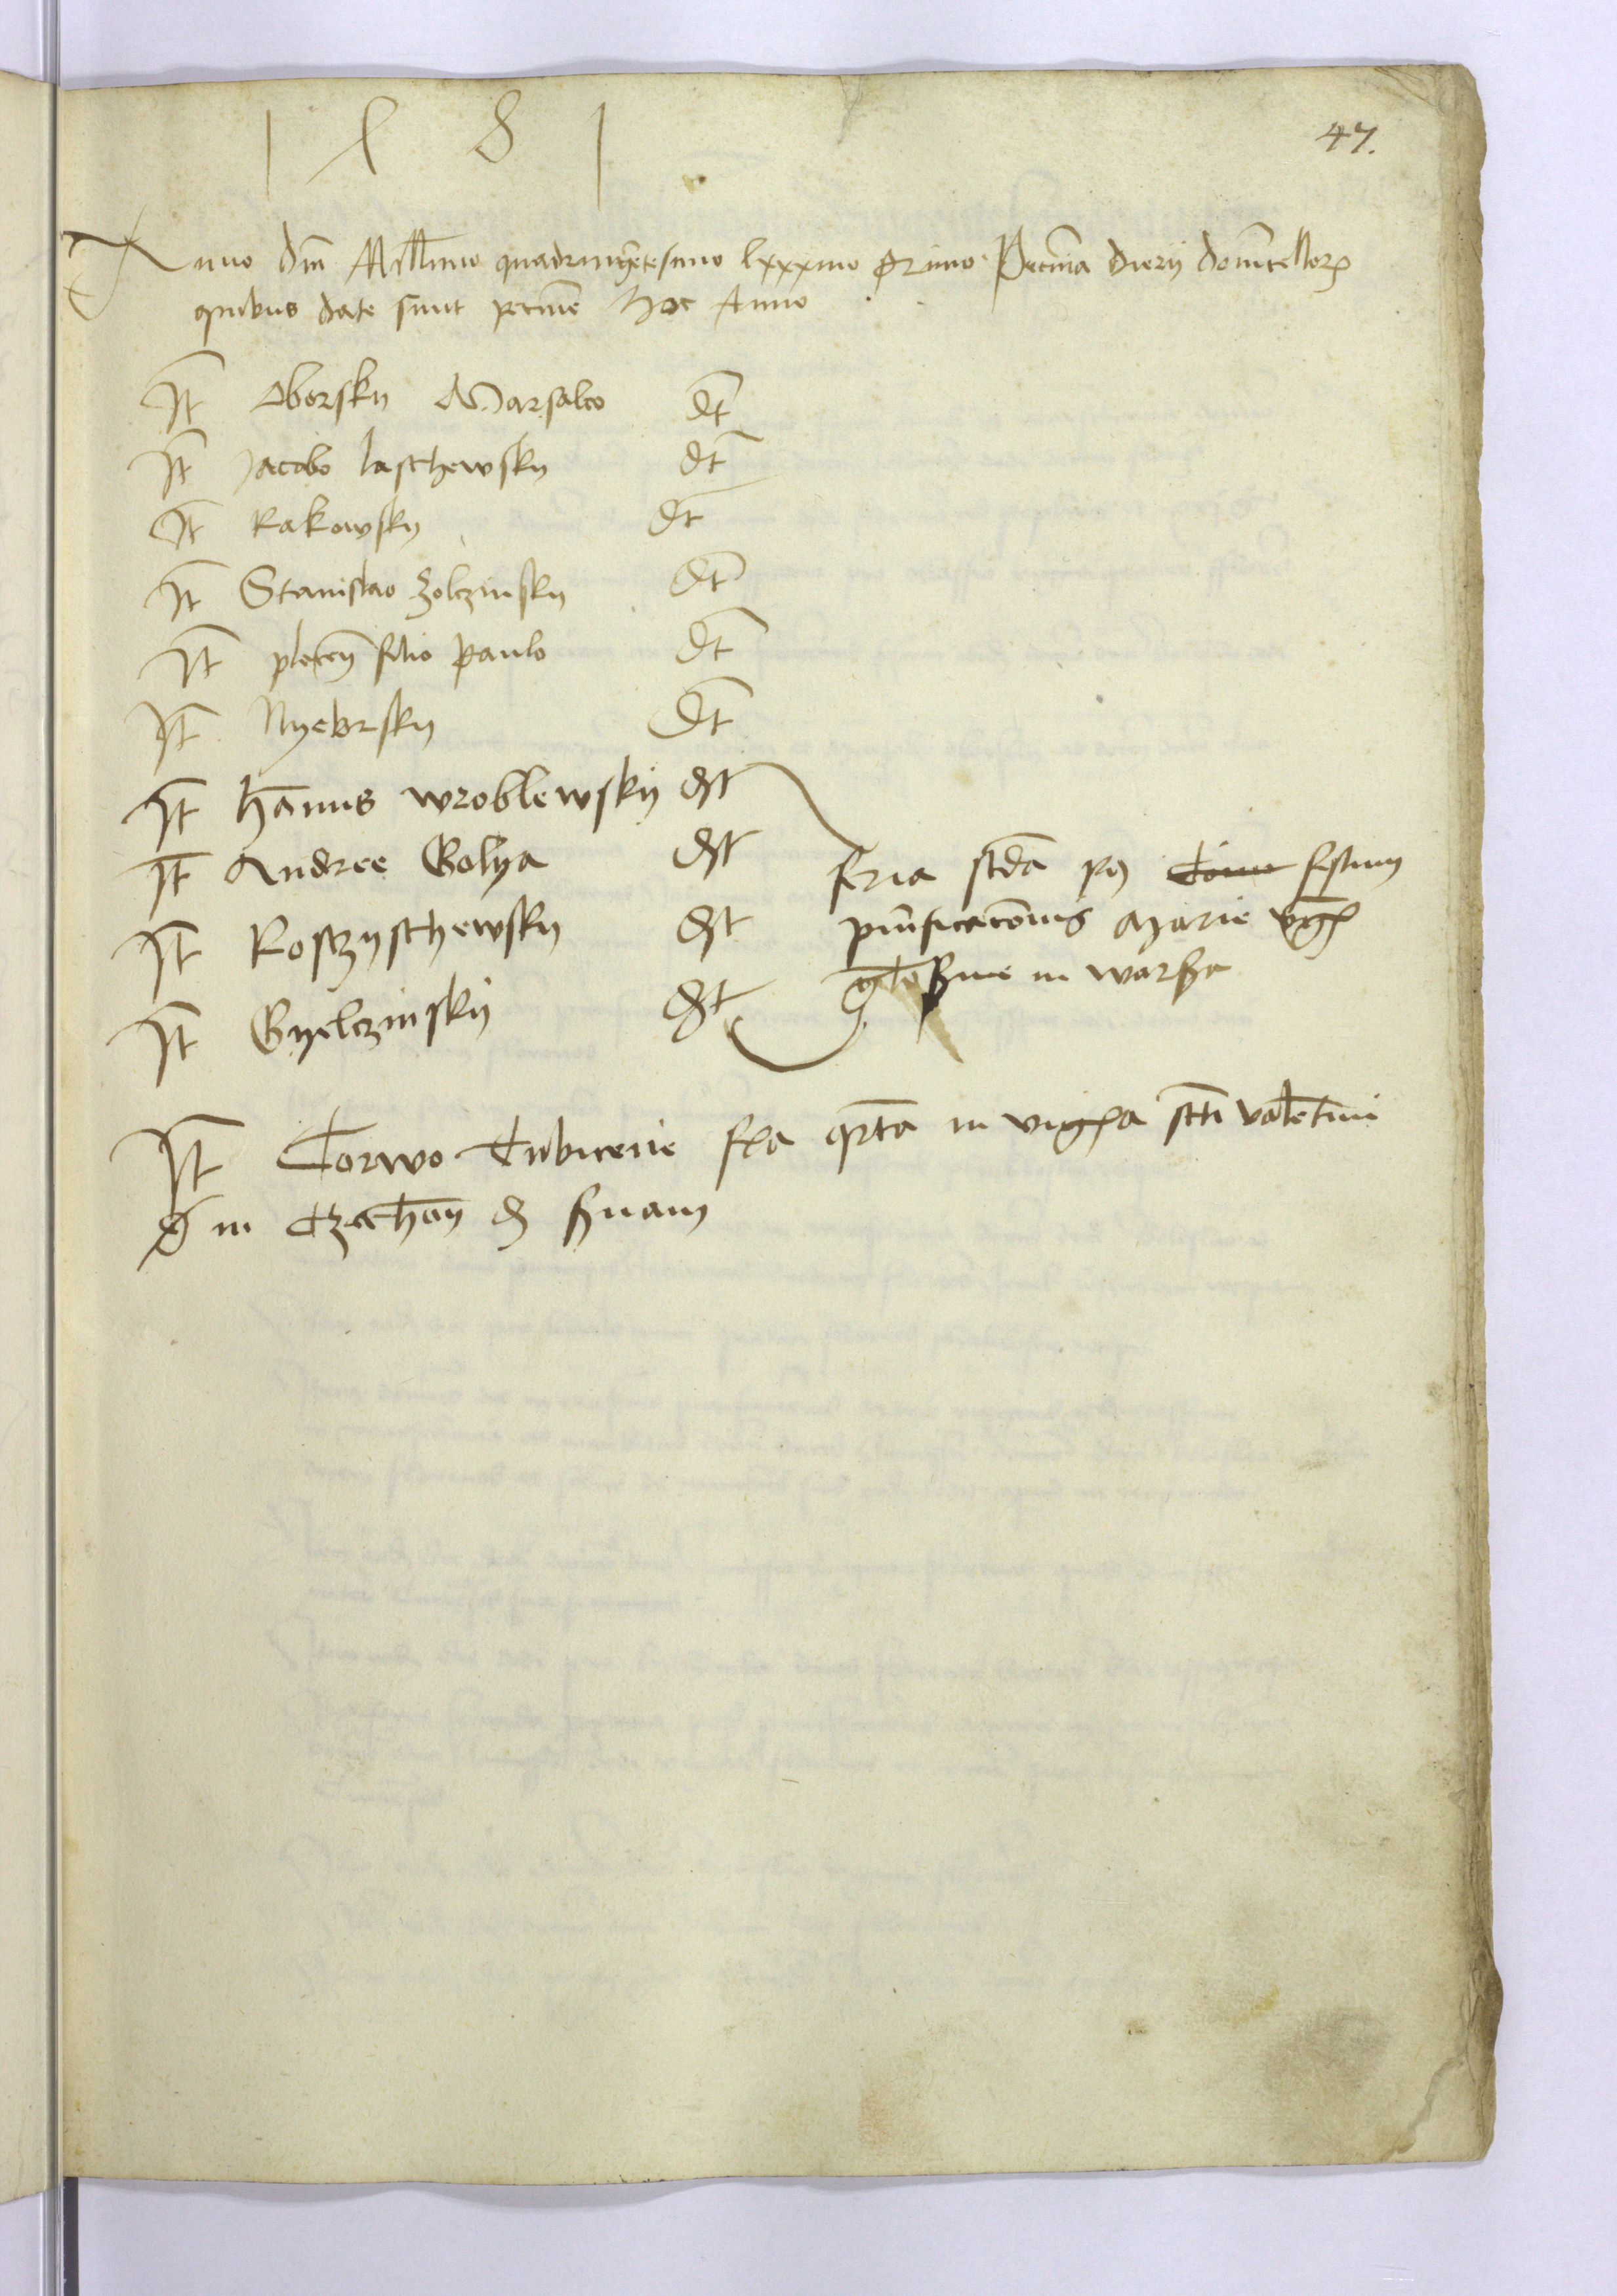 1 ꝉ 8 1
47.
Anno dm̄ Millimo quadringētesimo lxxxmo primo Pecunia dierū domicelloꝝ
quibus date sunt pecunie hoc Anno
It̄ Oborsky Marsalco dt̄
It̄ Jacobo laschewsky dt̄
It̄ Rakowsky dt̄
It̄ Stanislao Zolczinsky dt̄
It̄ filio paulo dt̄
It̄ Nyeborsky dt̄
It̄ hānus wroblewsky dt
It̄ Andree Golya dt
It̄ Rosczyschewsky dt
It̄ Gyelczinsky dt
feria scd̄a pꝰ festum
purificacōnis Marie vgꝭ
in warsza
It̄ Corwo Tubicene fꝭa qrta in vigꝭa scti valētini
in Czechan̄